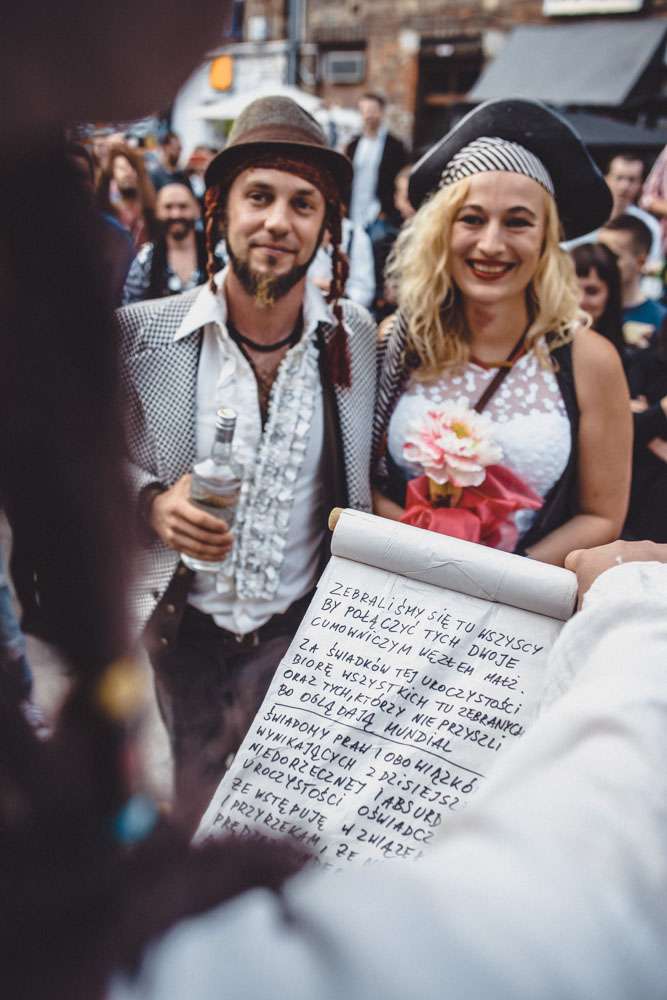 ZEBRALIŚMY SIĘ TU WSZYSCY
BY POŁĄCZYĆ TYCH DWOJE
CUMOWNICZYM WĘZŁEM MAŁŻ.
ZA ŚWIADKÓW TEJ UROCZYSTOŚCI
BIORĘ WSZYSTKICH TU ZEBRANYCH
ORAZ TYCH, KTÓRZY NIE PRZYSZLI
BO OGLĄDAJĄ MUNDIAL
ŚWIADOMY PRAW I OBOWIĄZKÓ
WYNIKAJĄCYCH Z DZISIEJSZ
NIEDORZECZNEJ I ABSURD
UROCZYSTOŚCI OŚWIADCZ
ŻE WSTĘPUJĘ W ZWIĄZE
I PRZYRZEKAM, ŻE